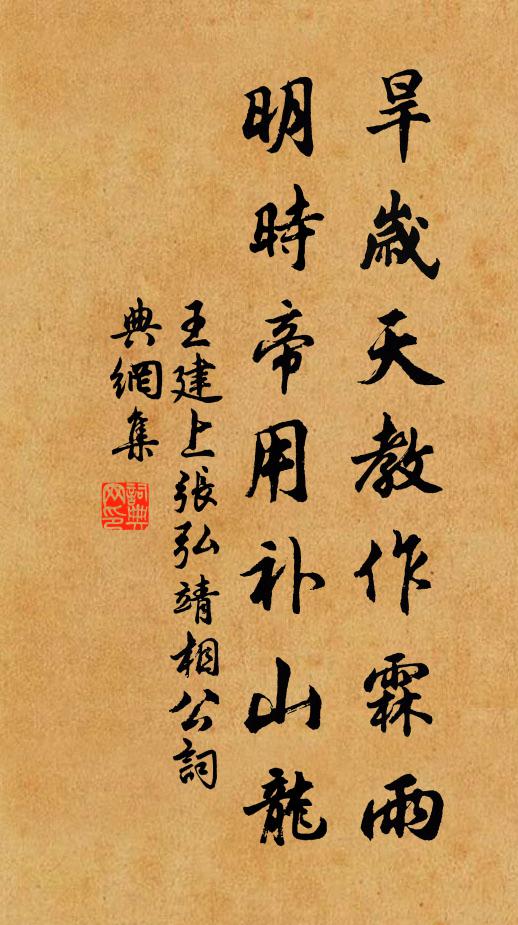 旱歲天教作霖雨
明時帝用补山龍
王建上張弘靖相公詞
典網集
詞典
网印